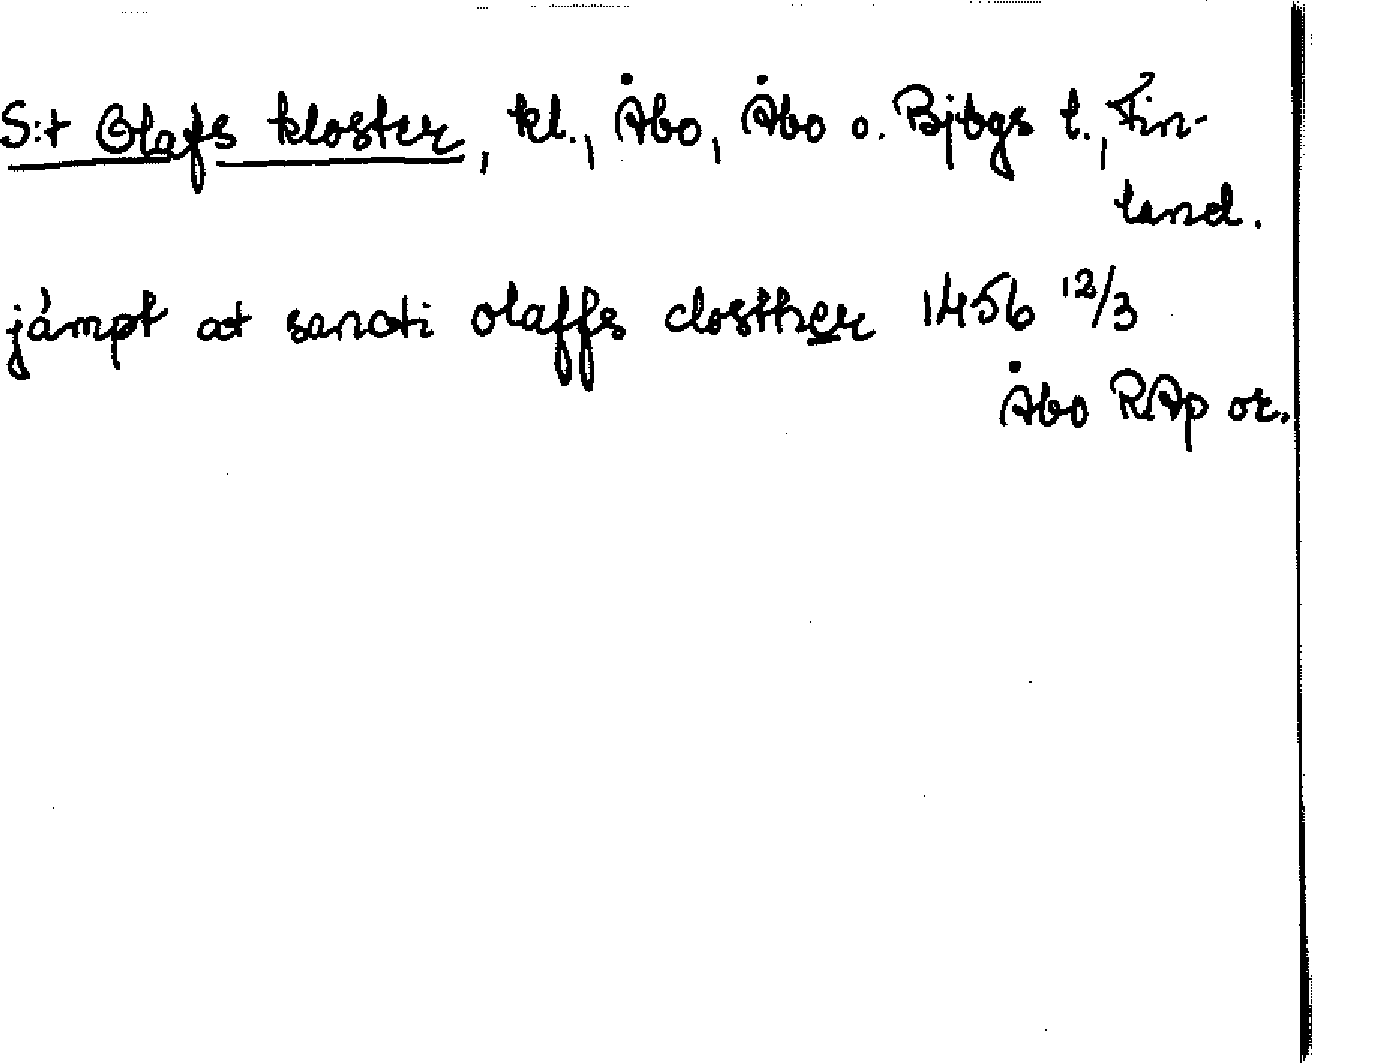 S:t Olafs kloster, kl., Åbo, Åbo o. Bjbgs l., Fin-
land.
jämpt at sancti olaffs closther 1456 12/3
Åbo RAp or.